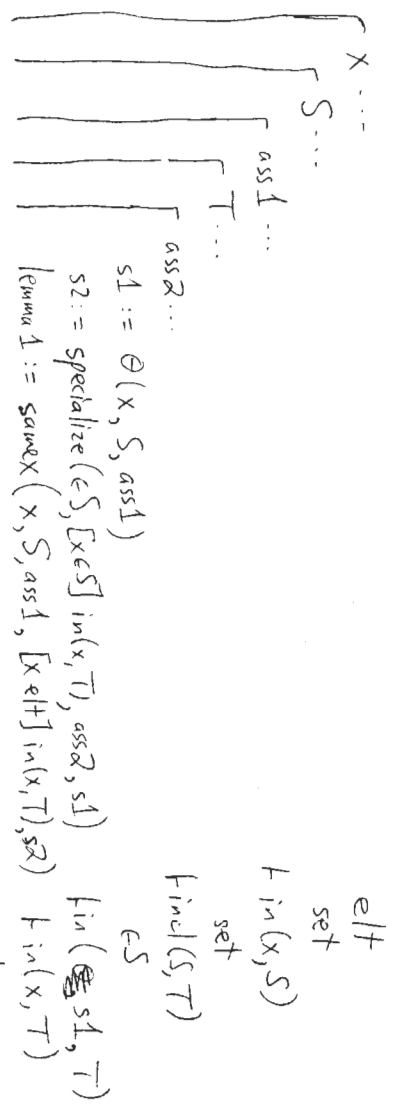 x .... elt
S .... set
ass1 .... ⊢ in(x, S)
T .... set
ass2 ... ⊢ incl(S, T)
s1 := θ(x, S, ass1) ∈S
s2 := specialize(∈S, [x∈S] in(x, T), ass2, s1) ⊢ in(s1, T)
lemma1 := samex(x, S, ass1, [x elt] in(x, T), s2) ⊢ in(x, T)